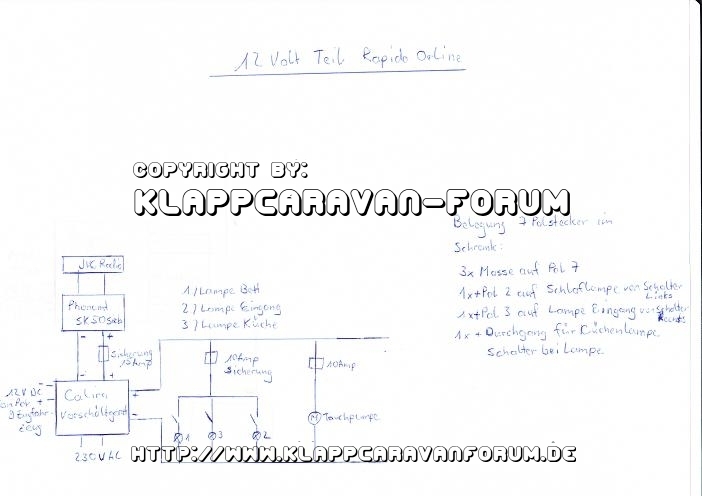 12 Volt Teil Rapido Orline
COPYRIGHT BY:
KLAPPCARAVAN-FORUM
Belegung 7 Polstecker im
Schrank:
3x Masse auf Pol 7
1x+Pol 2 auf Schlaflampe von Schalter
Links
1x+Pol 3 auf Lampe Eingang von Schalter
Rechts
1x + Durchgang für Küchenlampe
Schalter bei Lampe
JVC Radio
Phonend
SK50
1/ Lampe Bett
2/ Lampe Eingang
3/ Lampe Küche
Sicherung
15Amp
10Amp
Sicherung
10Amp
12V DC
Calira
Vorschaltgerät
+ -
Tauchpumpe
M
1 3 2
230V AC
HTTP://WWW.KLAPPCARAVANFORUM.DE